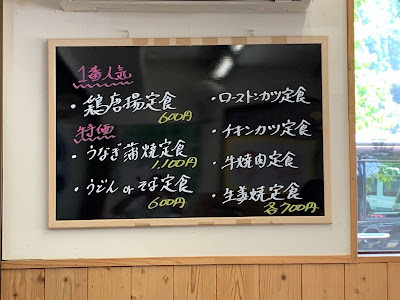 1番人気
・鶏唐揚定食
600円
特価
・うなぎ蒲焼定食
1,100円
・うどん or そば定食
600円
・ローストンカツ定食
・チキンカツ定食
・牛焼肉定食
・生姜焼定食
各700円